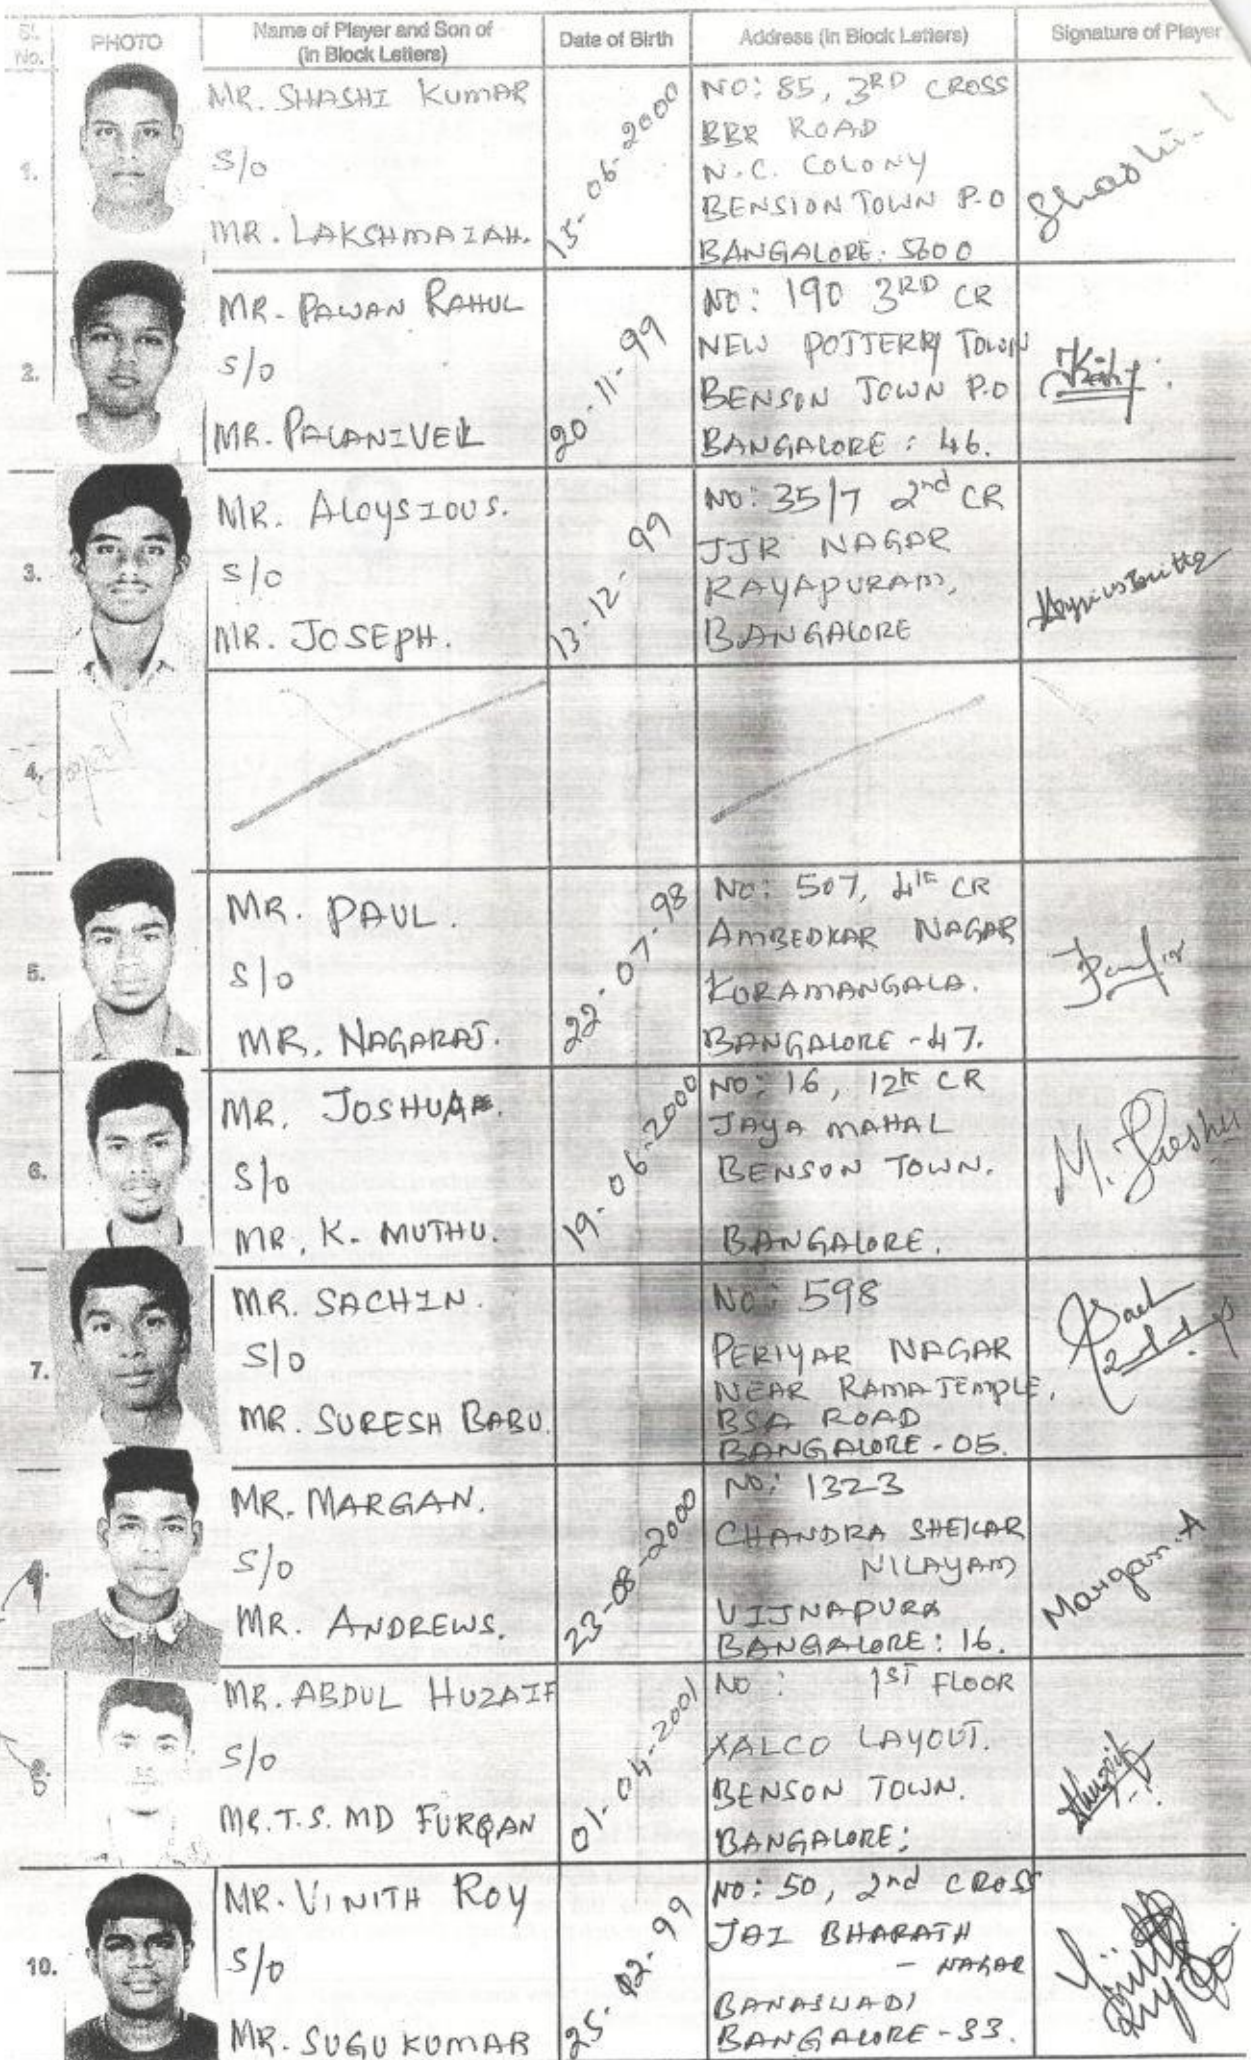 Sl. No.
PHOTO
Name of Player and Son of
(in Block Letters)
Date of Birth
Address (in Block Letters)
Signature of Player
1.
MR. SHASHI KUMAR
S/o
MR. LAKSHMAIAH.
15-06-2000
NO: 85, 3RD CROSS
BBR ROAD
N.C. COLONY
BENSION TOWN P.O
BANGALORE: 5600
2.
MR. PAWAN RAHUL
S/o
MR. PALANIVEL
20-11-99
NO: 190 3RD CR
NEW POTTERY TOWN
BENSON TOWN P.O
BANGALORE: 46.
3.
MR. ALOYSIOUS.
S/o
MR. JOSEPH.
13-12-99
NO: 35/7 2nd CR
JJR NAGAR
RAYAPURAM,
BANGALORE
4.
5.
MR. PAUL.
S/o
MR. NAGARAJ.
22-07-98
NO: 507, 4th CR
AMBEDKAR NAGAR
KORAMANGALA.
BANGALORE -47.
6.
MR. JOSHUA
S/o
MR. K. MUTHU.
19-06-2000
NO: 16, 12th CR
JAYA MAHAL
BENSON TOWN.
BANGALORE.
M.
7.
MR. SACHIN.
S/o
MR. SURESH BABU.
NO: 598
PERIYAR NAGAR
NEAR RAMA TEMPLE,
BSA ROAD
BANGALORE - 05.
MR. MARGAN.
S/o
MR. ANDREWS.
23-08-2000
NO: 1323
CHANDRA SHEKAR
NILAYAM
VIJNAPURA
BANGALORE: 16.
Margan.A
MR. ABDUL HUZAIF
S/o
MR. T.S. MD FURQAN
01-04-2001
NO: 1ST FLOOR
XALCO LAYOUT.
BENSON TOWN.
BANGALORE:
10.
MR. VINITH ROY
S/o
MR. SUGU KUMAR
NO: 50, 2nd CROSS
JAI BHARATH
- NAGAR
BANASWADI
BANGALORE -33.